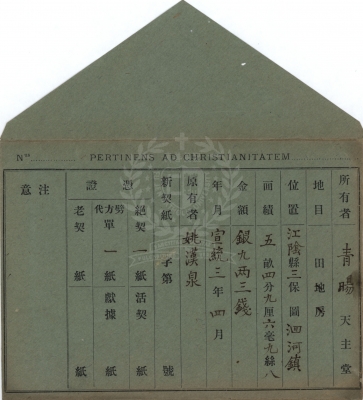 Nᵒˢ PERTINENS AD CHRISTIANITATEM
所有者 青暘 天主堂
地目 田地房
位置 江陰縣三保圖泗河鎮
面積 五畝四分九厘六毫九絲八
金額 銀九兩三錢
年月 宣統三年四月
原有者 姚漢泉
新契紙 字第 號
憑證
絕契 一紙 活契 紙
劈方代單 一紙 獻據 紙
老契 紙
注意